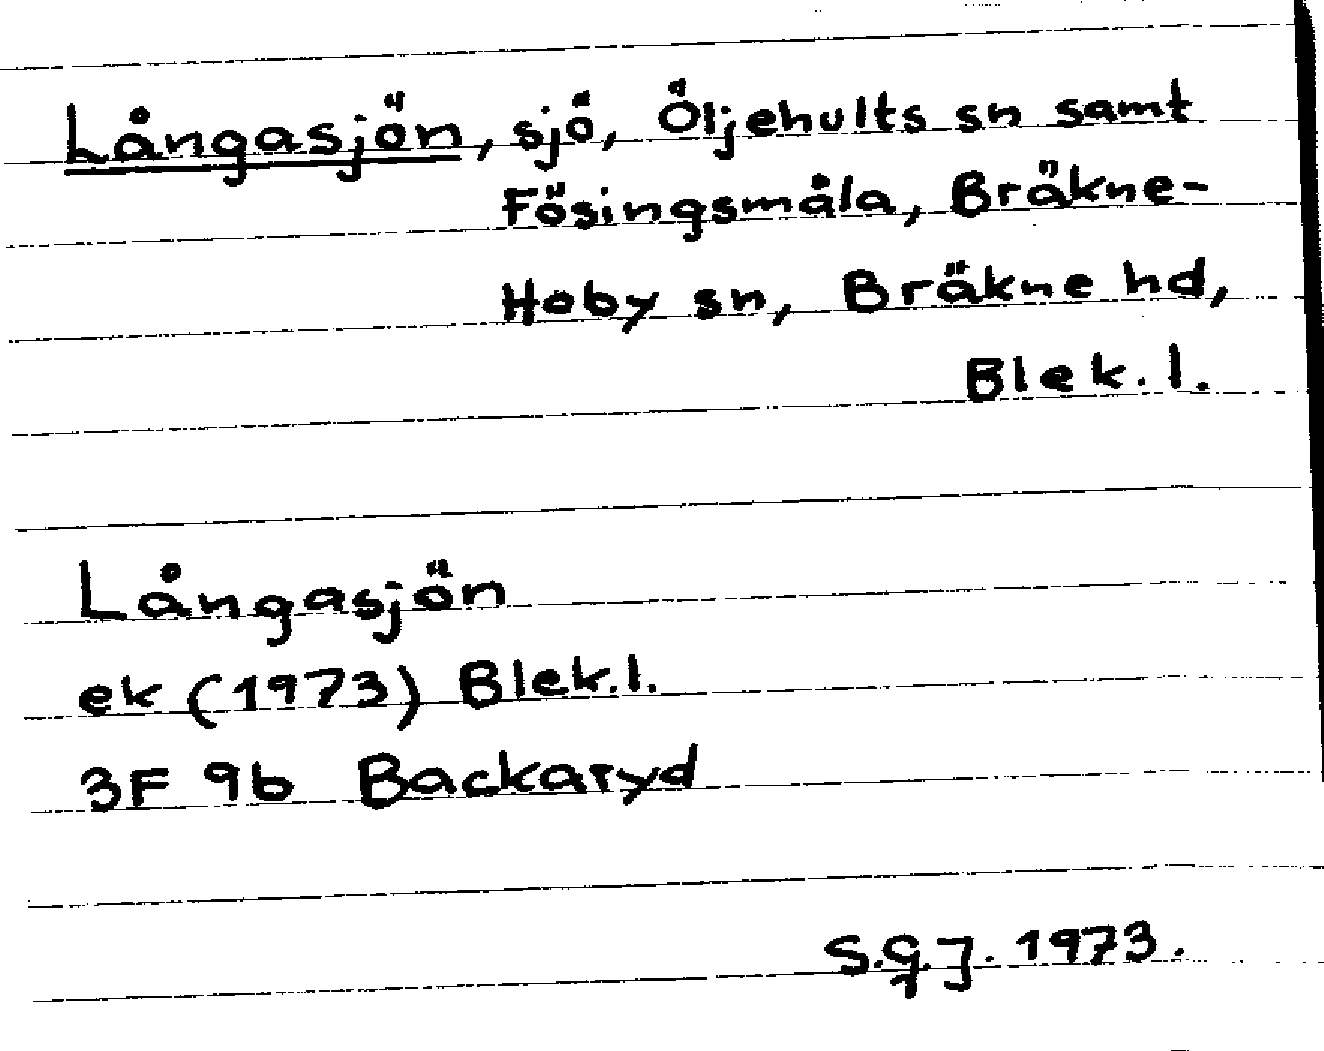 Långasjön, sjö, Öljehults sn samt
Fösingsmåla, Bräkne-
Hoby sn, Bräkne hd,
Blek. l.
Långasjön
ek (1973) Blek.l.
3F 9b Backaryd
S.G.J. 1973.